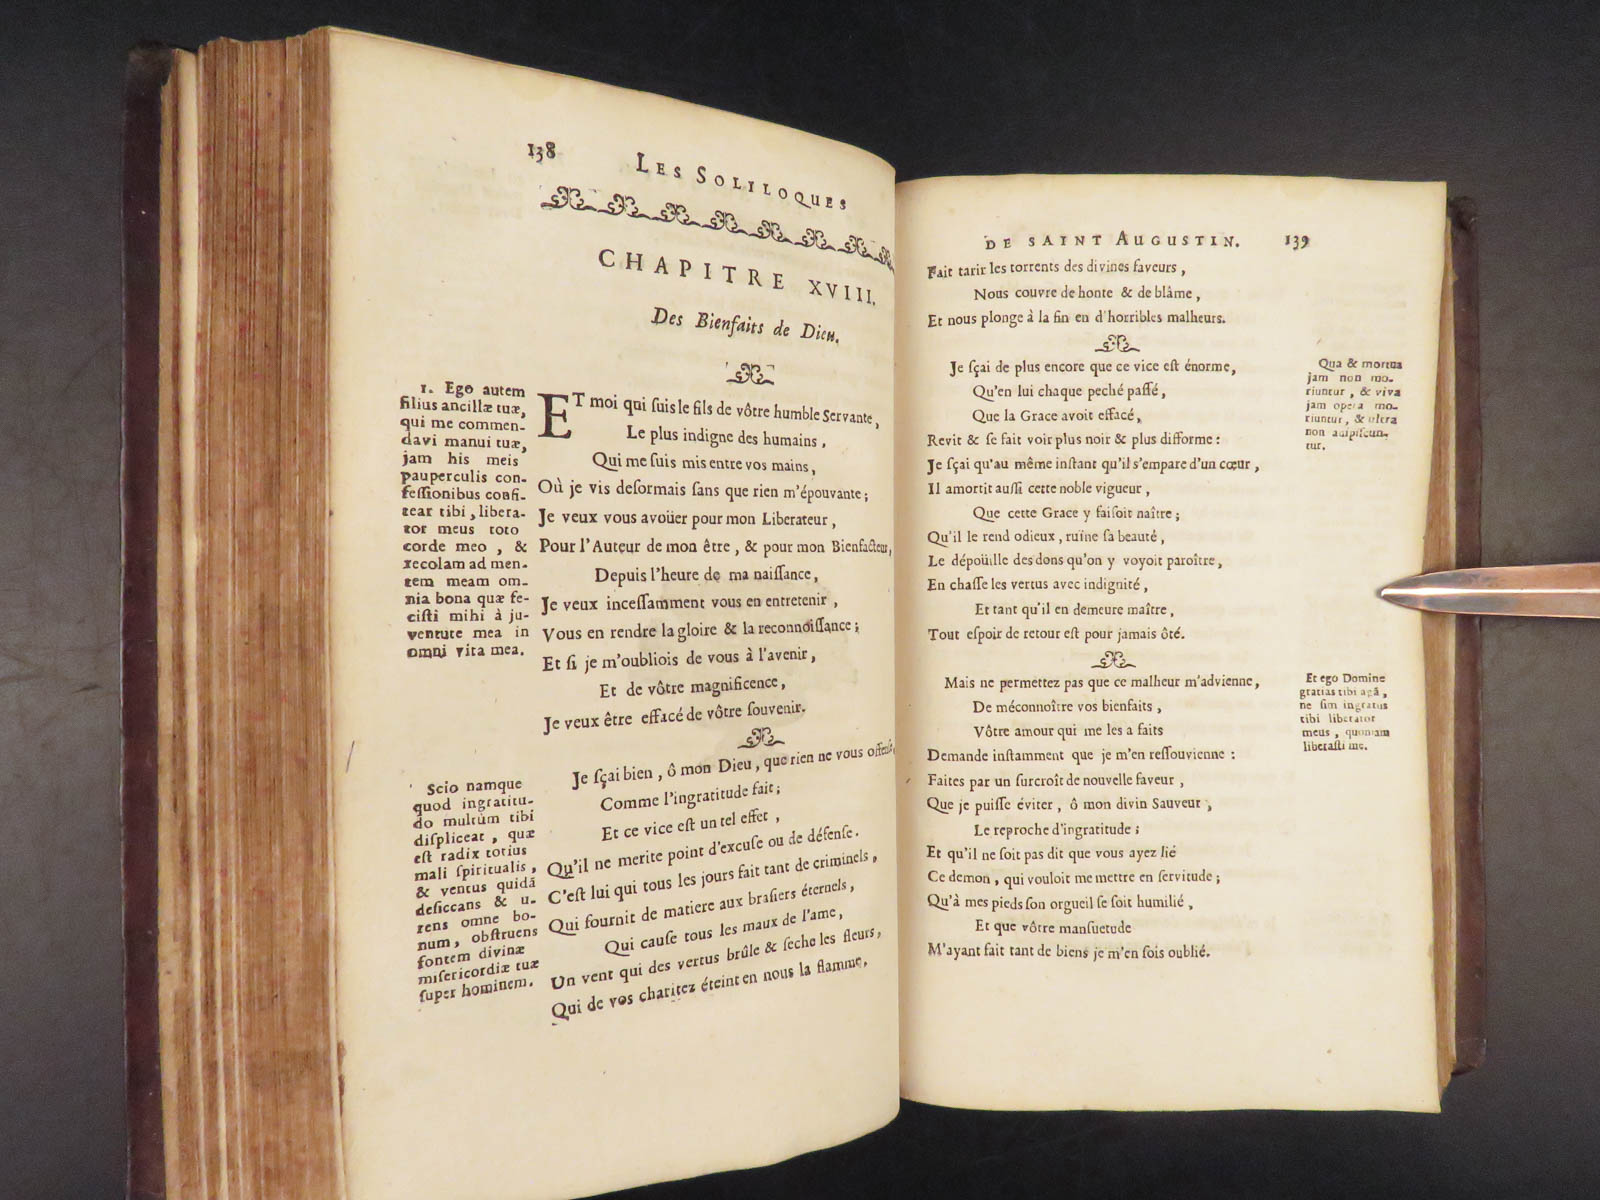 138
LES SOLILOQUES
CHAPITRE XVIII.
Des Bienfaits de Dieu.
1. Ego autem
filius ancillæ tuæ,
qui me commen-
davi manui tuæ,
jam his meis
pauperculis con-
feſſionibus confi-
tear tibi, libera-
tor meus toto
corde meo, &
recolam ad men-
tem meam om-
nia bona quæ fe-
ciſti mihi à ju-
ventute mea in
omni vita mea.
ET moi qui ſuis le fils de vôtre humble Servante,
Le plus indigne des humains,
Qui me ſuis mis entre vos mains,
Où je vis deſormais ſans que rien m'épouvante;
Je veux vous avoüer pour mon Liberateur,
Pour l'Auteur de mon être, & pour mon Bienfacteur,
Depuis l'heure de ma naiſſance,
Je veux inceſſamment vous en entretenir,
Vous en rendre la gloire & la reconnoiſſance;
Et ſi je m'oubliois de vous à l'avenir,
Et de vôtre magnificence,
Je veux être effacé de vôtre ſouvenir.
Scio namque
quod ingratitu-
do multùm tibi
diſpliceat, quæ
eſt radix totius
mali ſpiritualis,
& ventus quidã
deſiccans & u-
rens omne bo-
num, obſtruens
fontem divinæ
miſericordiæ tuæ
ſuper hominem.
Je ſçai bien, ô mon Dieu, que rien ne vous offenſe,
Comme l'ingratitude fait;
Et ce vice eſt un tel effet,
Qu'il ne merite point d'excuſe ou de défenſe.
C'eſt lui qui tous les jours fait tant de criminels,
Qui fournit de matiere aux braſiers éternels,
Qui cauſe tous les maux de l'ame,
Un vent qui des vertus brûle & ſeche les fleurs,
Qui de vos charitez éteint en nous la flamme,
DE SAINT AUGUSTIN.
139
Fait tarir les torrents des divines faveurs,
Nous couvre de honte & de blâme,
Et nous plonge à la fin en d'horribles malheurs.
Je ſçai de plus encore que ce vice eſt énorme,
Qu'en lui chaque peché paſſé,
Que la Grace avoit effacé,
Revit & ſe fait voir plus noir & plus difforme:
Je ſçai qu'au même inſtant qu'il s'empare d'un cœur,
Il amortit auſſi cette noble vigueur,
Que cette Grace y faiſoit naître;
Qu'il le rend odieux, ruïne ſa beauté,
Le dépoüille des dons qu'on y voyoit paroître,
En chaſſe les vertus avec indignité,
Et tant qu'il en demeure maître,
Tout eſpoir de retour eſt pour jamais ôté.
Qua & mortua
jam non mo-
riuntur, & viva
jam opera mo-
riuntur, & ultra
non adipiſcun-
tur.
Mais ne permettez pas que ce malheur m'advienne,
De méconnoître vos bienfaits,
Vôtre amour qui me les a faits
Demande inſtamment que je m'en reſſouvienne:
Faites par un ſurcroît de nouvelle faveur,
Que je puiſſe éviter, ô mon divin Sauveur,
Le reproche d'ingratitude;
Et qu'il ne ſoit pas dit que vous ayez lié
Ce demon, qui vouloit me mettre en ſervitude;
Qu'à mes pieds ſon orgueil ſe ſoit humilié,
Et que vôtre manſuetude
M'ayant fait tant de biens je m'en ſois oublié.
Et ego Domine
gratias tibi agã,
ne ſim ingratus
tibi liberator
meus, quoniam
liberaſti me.